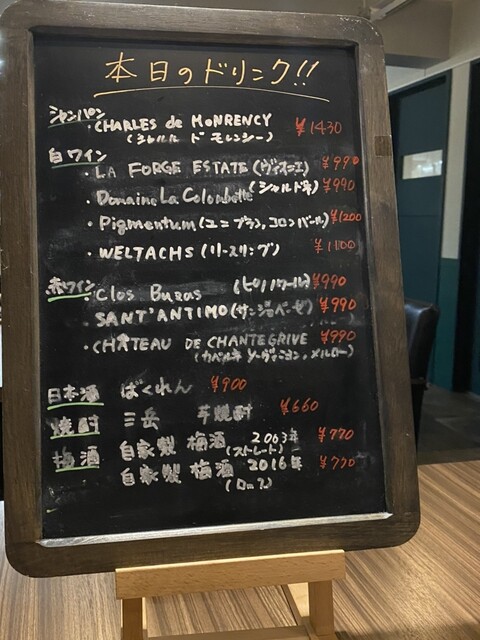 本日のドリンク!!
シャンパン
・CHARLES de MONRENCY ¥1430
(シャルル ド モレンシー)
白ワイン
・LA FORGE ESTATE (ヴィオニエ) ¥990
・Domaine La Colombette (シャルドネ) ¥990
・Pigmentum (ユニブラン, コロンバール) ¥1200
・WELTACHS (リースリング) ¥1100
赤ワイン
・Clos Buzas (ピノノワール) ¥990
・SANT'ANTIMO (サンジョベーゼ) ¥990
・CHATEAU DE CHANTEGRIVE ¥990
(カベルネ ソーヴィニヨン, メルロー)
日本酒 ばくれん ¥900
焼酎 三岳 芋焼酎 ¥660
梅酒 自家製 梅酒 2063年 ¥770
(ストレート)
自家製 梅酒 2016年 ¥770